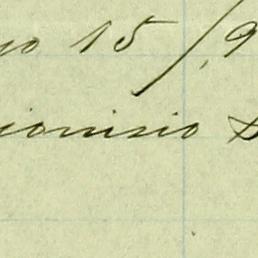 go 15/9
ionisio D